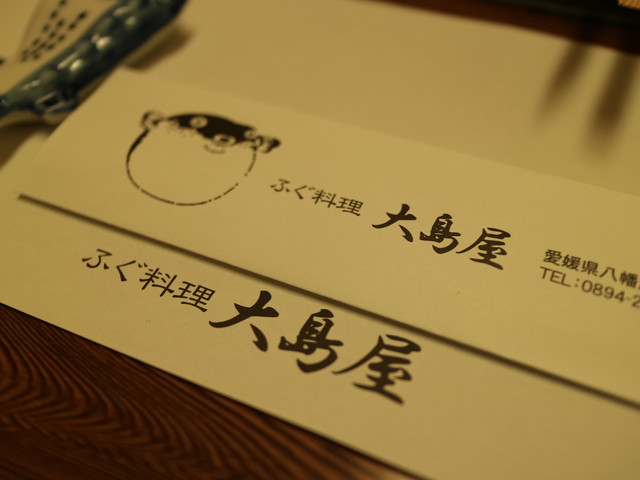 ふぐ料理 大島屋
愛媛県八幡
TEL:0894-2
ふぐ料理 大島屋